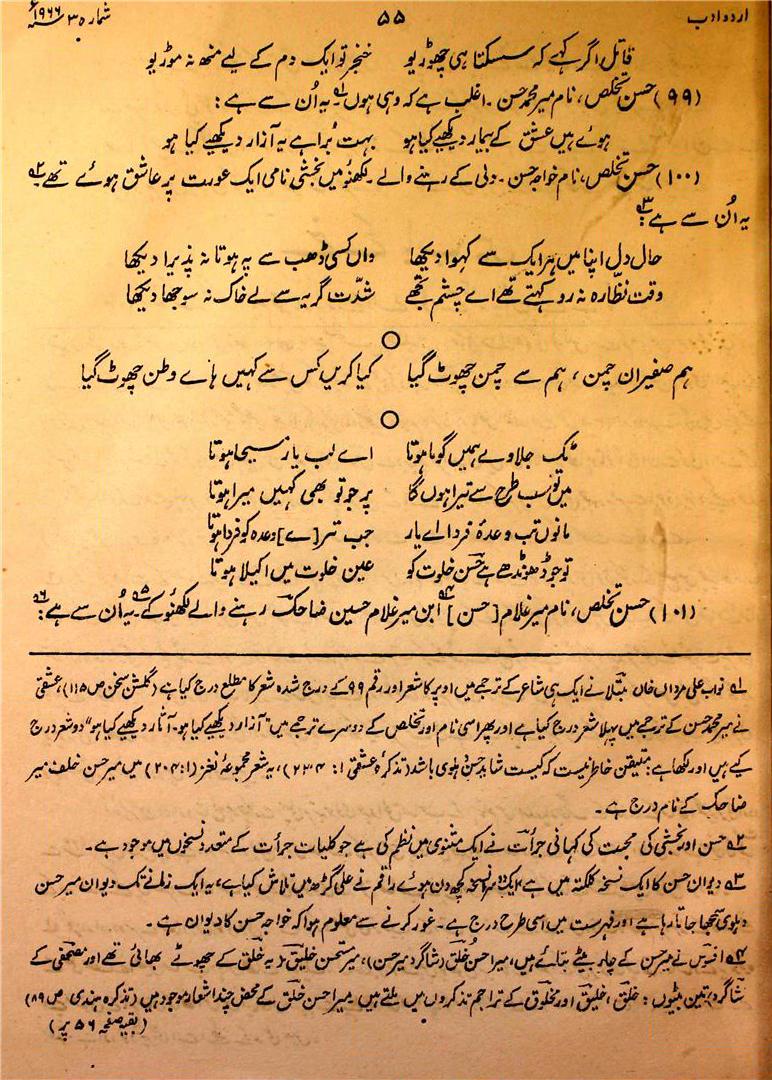 اردو ادب ۵۵ شمارہ ۳ ۱۹۶۶ء
قاتل اگر کہے کہ سسکتا ہی چھوڑیو خنجر تو ایک دم کے لیے منھ نہ موڑیو
(۹۹) حسن تخلص، نام میر محمد حسن ۔ اغلب ہے کہ وہی ہوں ۱؎۔ یہ اُن سے ہے:
ہوئے ہیں عشق کے بیمار دیکھیے کیا ہو بہت بُرا ہے یہ آزار دیکھیے کیا ہو
(۱۰۰) حسن تخلص، نام خواجہ حسن ۔ دلی کے رہنے والے ۔ لکھنؤ میں بخشی نامی ایک عورت پر عاشق ہوئے تھے ۲؎۔
یہ اُن سے ہے ۳؎:
حال دل اپنا میں ہر ایک سے کہوا دیکھا واں کسی ڈھب سے یہ ہوتا نہ پذیرا دیکھا
وقت نظّارہ نہ رو کہتے تھے اے چشم تجھے شدّت گریہ سے لے خاک نہ سوجھا دیکھا
ہم صفیران چمن، ہم سے چمن چھوٹ گیا کیا کریں کس سے کہیں ہاے وطن چھوٹ گیا
ٹک جلاوے ہمیں گویا ہوتا اے لب یار مسیحا ہوتا
میں تو سب طرح سے تیرا ہوں گا پر جو تو بھی کہیں میرا ہوتا
مانوں تب وعدۂ فردا اے یار جب تر[ے] وعدہ کو فردا ہوتا
تو جو ڈھونڈھے ہے حسن خلوت کو عین خلوت میں اکیلا ہوتا
(۱۰۱) حسن تخلص، نام میر غلام [حسن] ۴؎ ابن میر غلام حسین ضاحک رہنے والے لکھنؤ کے ۵؎۔ یہ اُن سے ہے ۶؎:
۱؎ نواب علی مردان خاں مبتلا نے ایک ہی شاعر کے ترجمے میں اوپر کا شعر اور رقم ۹۹ کے درج شدہ شعر کا مطلع درج کیا ہے (گلشن سخن ص ۱۱۵)، عشقی
نے میر محمد حسن کے ترجمے میں پہلا شعر درج کیا ہے اور پھر اسی نام اور تخلص کے دوسرے ترجمے میں "آزار دیکھیے کیا ہو ۔ آثار دیکھیے کیا ہو" دو شعر درج
کیے ہیں اور لکھا ہے: متیقن خاطر نیست کہ کیست شاید حسن دہلوی باشد (تذکرۂ عشقی ۱: ۲۳۴)، یہ شعر مجموعۂ نغز (۱: ۲۰۴) میں میر حسن خلف میر
ضاحک کے نام درج ہے۔
۲؎ حسن اور بخشی کی محبت کی کہانی جرأت نے ایک مثنوی میں نظم کی ہے جو کلیات جرأت کے متعدد نسخوں میں موجود ہے۔
۳؎ دیوان حسن کا ایک نسخہ کلکتہ میں ہے، ایک دوسرا نسخہ کچھ دن ہوئے راقم نے علی گڑھ میں تلاش کیا ہے، یہ ایک زمانے تک دیوان میر حسن
دہلوی سمجھا جاتا رہا ہے اور فہرست میں اسی طرح درج ہے۔ غور کرنے سے معلوم ہوا کہ خواجہ حسن کا دیوان ہے۔
۴؎ افسوس نے میر حسن کے چار بیٹے بتائے ہیں، میر احسن خلق (شاگرد میر حسن)، میر مستحسن خلیق (یہ خلق کے چھوٹے بھائی تھے اور مصحفی کے
شاگرد) تین بیٹوں: خلق، خلیق اور مخلوق کے تراجم تذکروں میں ملتے ہیں میر احسن خلق کے محض چند اشعار موجود ہیں (تذکرہ ہندی ص ۸۹)
(بقیہ صفحہ ۵۶ پر)